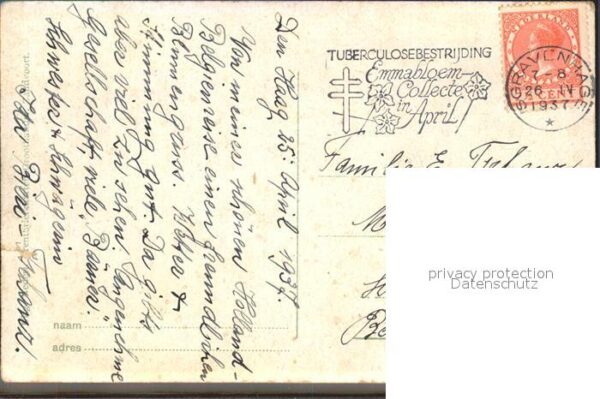 Den Haag 25. April 1937.
Von meiner schönen Holland-
Belgienreise einen freundlichen
Blumengruss. Wetter &
Stimmung gut. Da gibts
aber viel zu sehen. Angenehme
Gesellschaft, viele
Schwester & Schwägerin
naam
adres
TUBERCULOSEBESTRIJDING
Emmabloem-
Collecte
in April!
NEDERLAND
'S GRAVENHAGE
26 IV
1937
Familie E.
privacy protection
Datenschutz